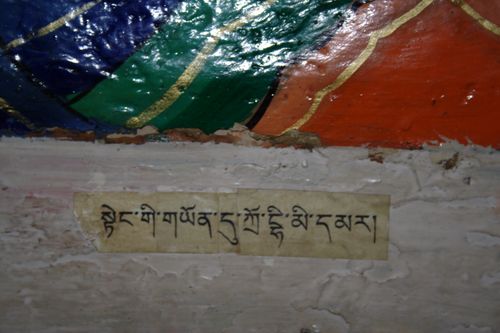 སྟེང་གི་གཡོན་དུ་ཀྲོ་ངྷི་མི་དམར།